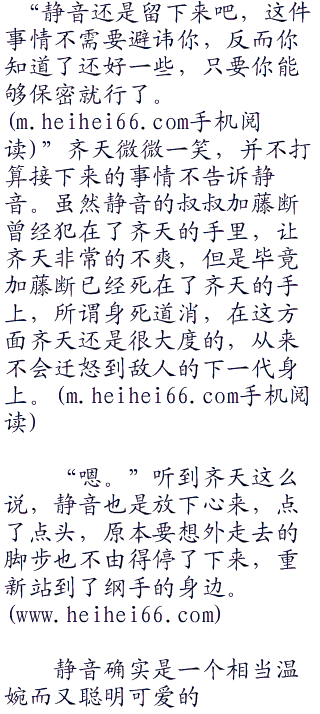 “静音还是留下来吧，这件
事情不需要避讳你，反而你
知道了还好一些，只要你能
够保密就行了。
(m.heihei66.com手机阅
读)”齐天微微一笑，并不打
算接下来的事情不告诉静
音。虽然静音的叔叔加藤断
曾经犯在了齐天的手里，让
齐天非常的不爽，但是毕竟
加藤断已经死在了齐天的手
上，所谓身死道消，在这方
面齐天还是很大度的，从来
不会迁怒到敌人的下一代身
上。(m.heihei66.com手机阅
读)
“嗯。”听到齐天这么
说，静音也是放下心来，点
了点头，原本要想外走去的
脚步也不由得停了下来，重
新站到了纲手的身边。
(www.heihei66.com)
静音确实是一个相当温
婉而又聪明可爱的